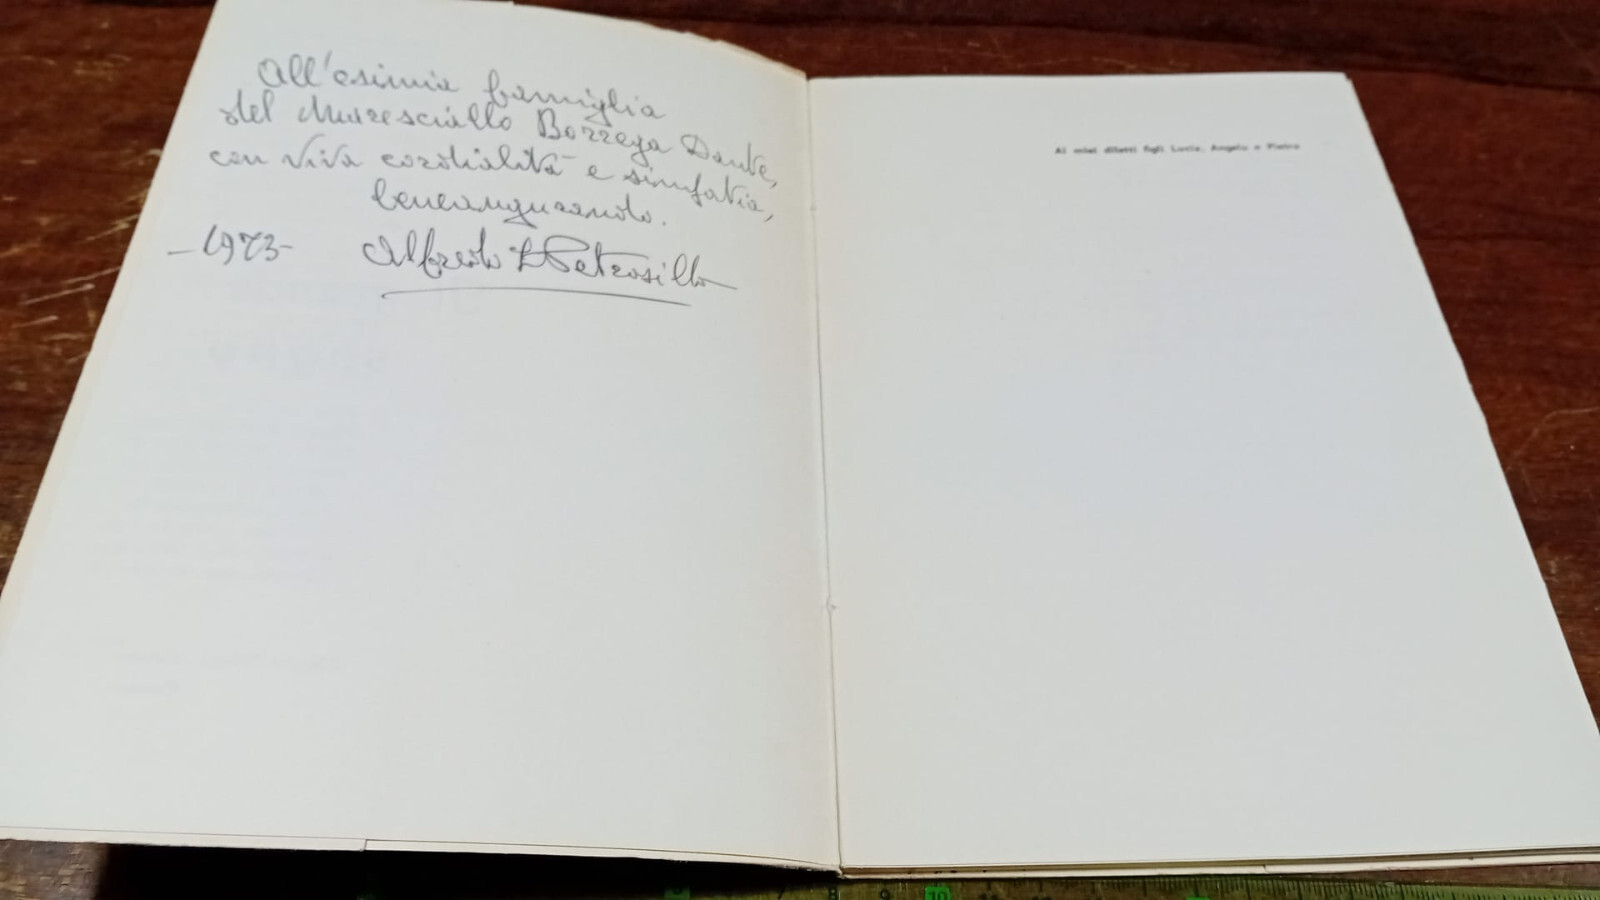 All'esimia famiglia
del Maresciallo Borrega Dante,
con viva cordialità e simpatia,
beneaugurando.
-1973- Alfredo Petrosillo
Ai miei diletti figli Lucia, Angela e Pietro
7 8 9 10